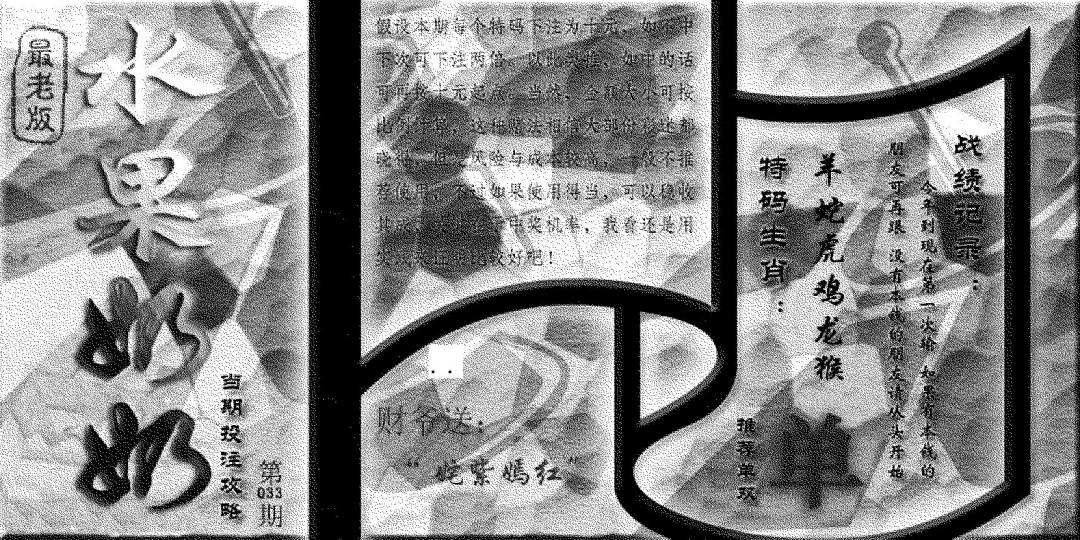 最老版
水果奶奶
当期投注攻略
第
033
期
假设本期每个特码下注为十元，如不中
下次可下注两倍，以此类推，如中的话
可再按十元起点。当然，金额大小可按
比例计算，这种赌法相信大部份彩迷都
晓得，但是风险与成本较高，一般不推
荐使用，不过如果使用得当，可以稳收
中奖机率，我看还是用
比较好吧！
财爷送：
“姹紫嫣红”
战绩记录：
今年到现在第一次输 如果有本钱的
朋友可再跟 没有本钱的朋友请从头开始
特码生肖：
羊蛇虎鸡龙猴
推荐单双
单